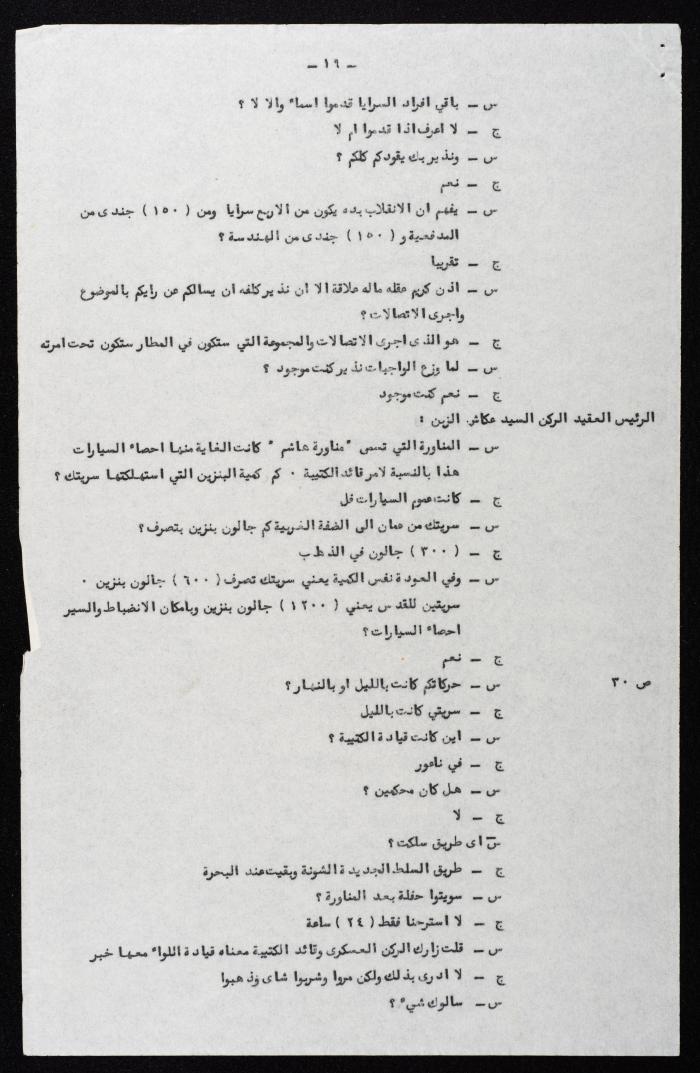 - ١٦ -
س - باقي افراد السرايا قدموا اسماء والا لا ؟
ج - لا اعرف اذا قدموا ام لا
س - ونذير بك يقودكم كلكم ؟
ج - نعم
س - يفهم ان الانقلاب بده يكون من الاربع سرايا ومن ( ١٥٠ ) جندى من
المدفعية و ( ١٥٠ ) جندى من الهندسة ؟
ج - تقريبا
س - اذن كريم عقله ماله علاقة الا ان نذير كلفه ان يسالكم عن رايكم بالموضوع
واجرى الاتصالات ؟
ج - هو الذى اجرى الاتصالات والمجموعة التي ستكون في المطار ستكون تحت امرته
س - لما وزع الواجبات نذير كنت موجود ؟
ج - نعم كنت موجود
الرئيس العقيد الركن السيد عكاش الزبن :
س - المناورة التي تسمى " مناورة هاشم " كانت الغاية منها احصاء السيارات
هذا بالنسبة لامر قائد الكتيبة ٠ كم كمية البنزين التي استهلكتها سريتك ؟
ج - كانت عموم السيارات فل
س - سريتك من عمان الى الضفة الغربية كم جالون بنزين بتصرف ؟
ج - ( ٣٠٠ ) جالون في الذهاب
س - وفي العودة نفس الكمية يعني سريتك تصرف ( ٦٠٠ ) جالون بنزين ٠
سريتين للقدس يعني ( ١٢٠٠ ) جالون بنزين وبامكان الانضباط والسير
احصاء السيارات ؟
ج - نعم
ص ٣٠ س - حركاتكم كانت بالليل او بالنهار ؟
ج - سريتي كانت بالليل
س - اين كانت قيادة الكتيبة ؟
ج - في ناعور
س - هل كان محكمين ؟
ج - لا
س - اى طريق سلكت ؟
ج - طريق السلط الجديدة الشونة وبقيت عند البحرة
س - سويتوا حفلة بعد المناورة ؟
ج - لا استرحنا فقط ( ٢٤ ) ساعة
س - قلت زارك الركن العسكرى وقائد الكتيبة معناه قيادة اللواء معها خبر
ج - لا ادرى بذلك ولكن مروا وشربوا شاى وذهبوا
س - سالوك شيء ؟